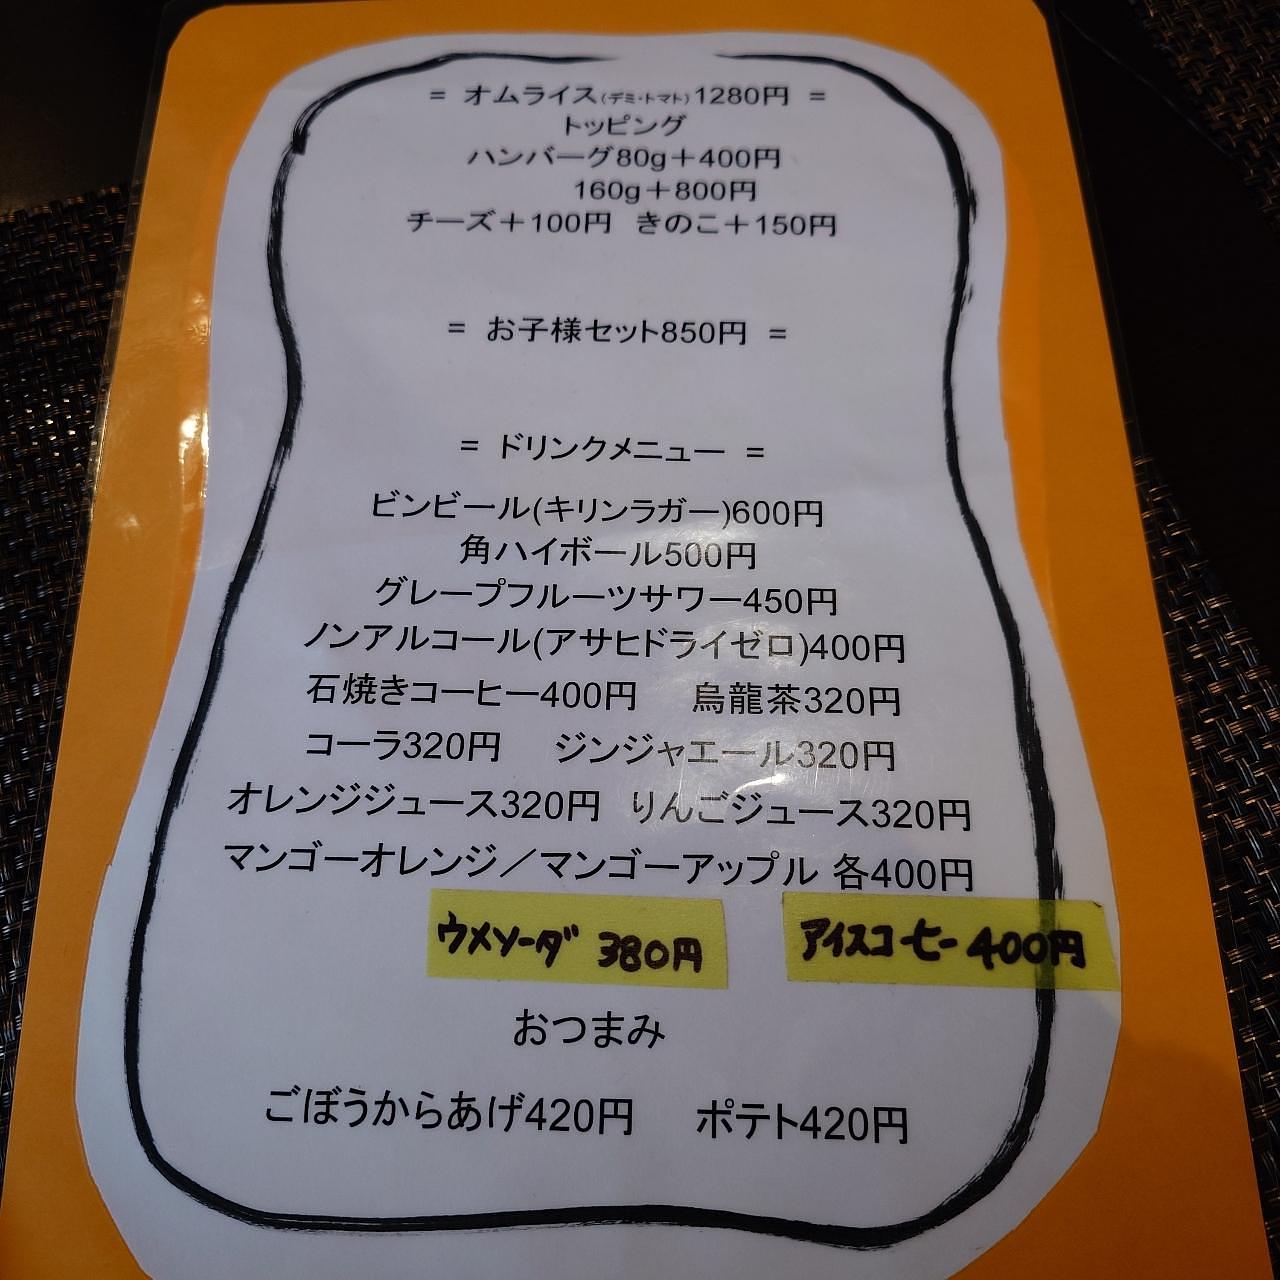 = オムライス(デミ・トマト)1280円 =
トッピング
ハンバーグ80g＋400円
160g＋800円
チーズ＋100円 きのこ＋150円
= お子様セット850円 =
= ドリンクメニュー =
ビンビール(キリンラガー)600円
角ハイボール500円
グレープフルーツサワー450円
ノンアルコール(アサヒドライゼロ)400円
石焼きコーヒー400円 烏龍茶320円
コーラ320円 ジンジャエール320円
オレンジジュース320円 りんごジュース320円
マンゴーオレンジ／マンゴーアップル 各400円
ウメソーダ 380円 アイスコーヒー 400円
おつまみ
ごぼうからあげ420円 ポテト420円